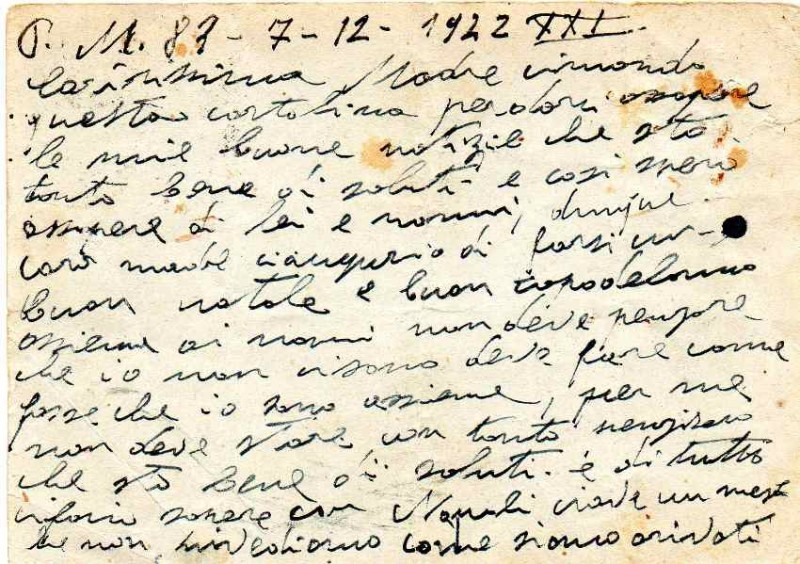 P. M. 83 - 7 - 12 - 1942 XXI
Carissima Madre vi mando
questa cartolina per darvi assapere
le mie buone notizie che sto
tanto bene di saluti e cosi spero
senpere di lei e nonni, dunque
cara madre ci augurio di farsi un
buon natale e buon capodelanno
assieme ai nonni non deve pensare
che io non ci sono deve fare come
fosse che io sono assieme, per me
non deve stare con tanto
che sto bene di saluti. è di tutto
sapere con Napuli un mese
che non vediamo come siamo arivati